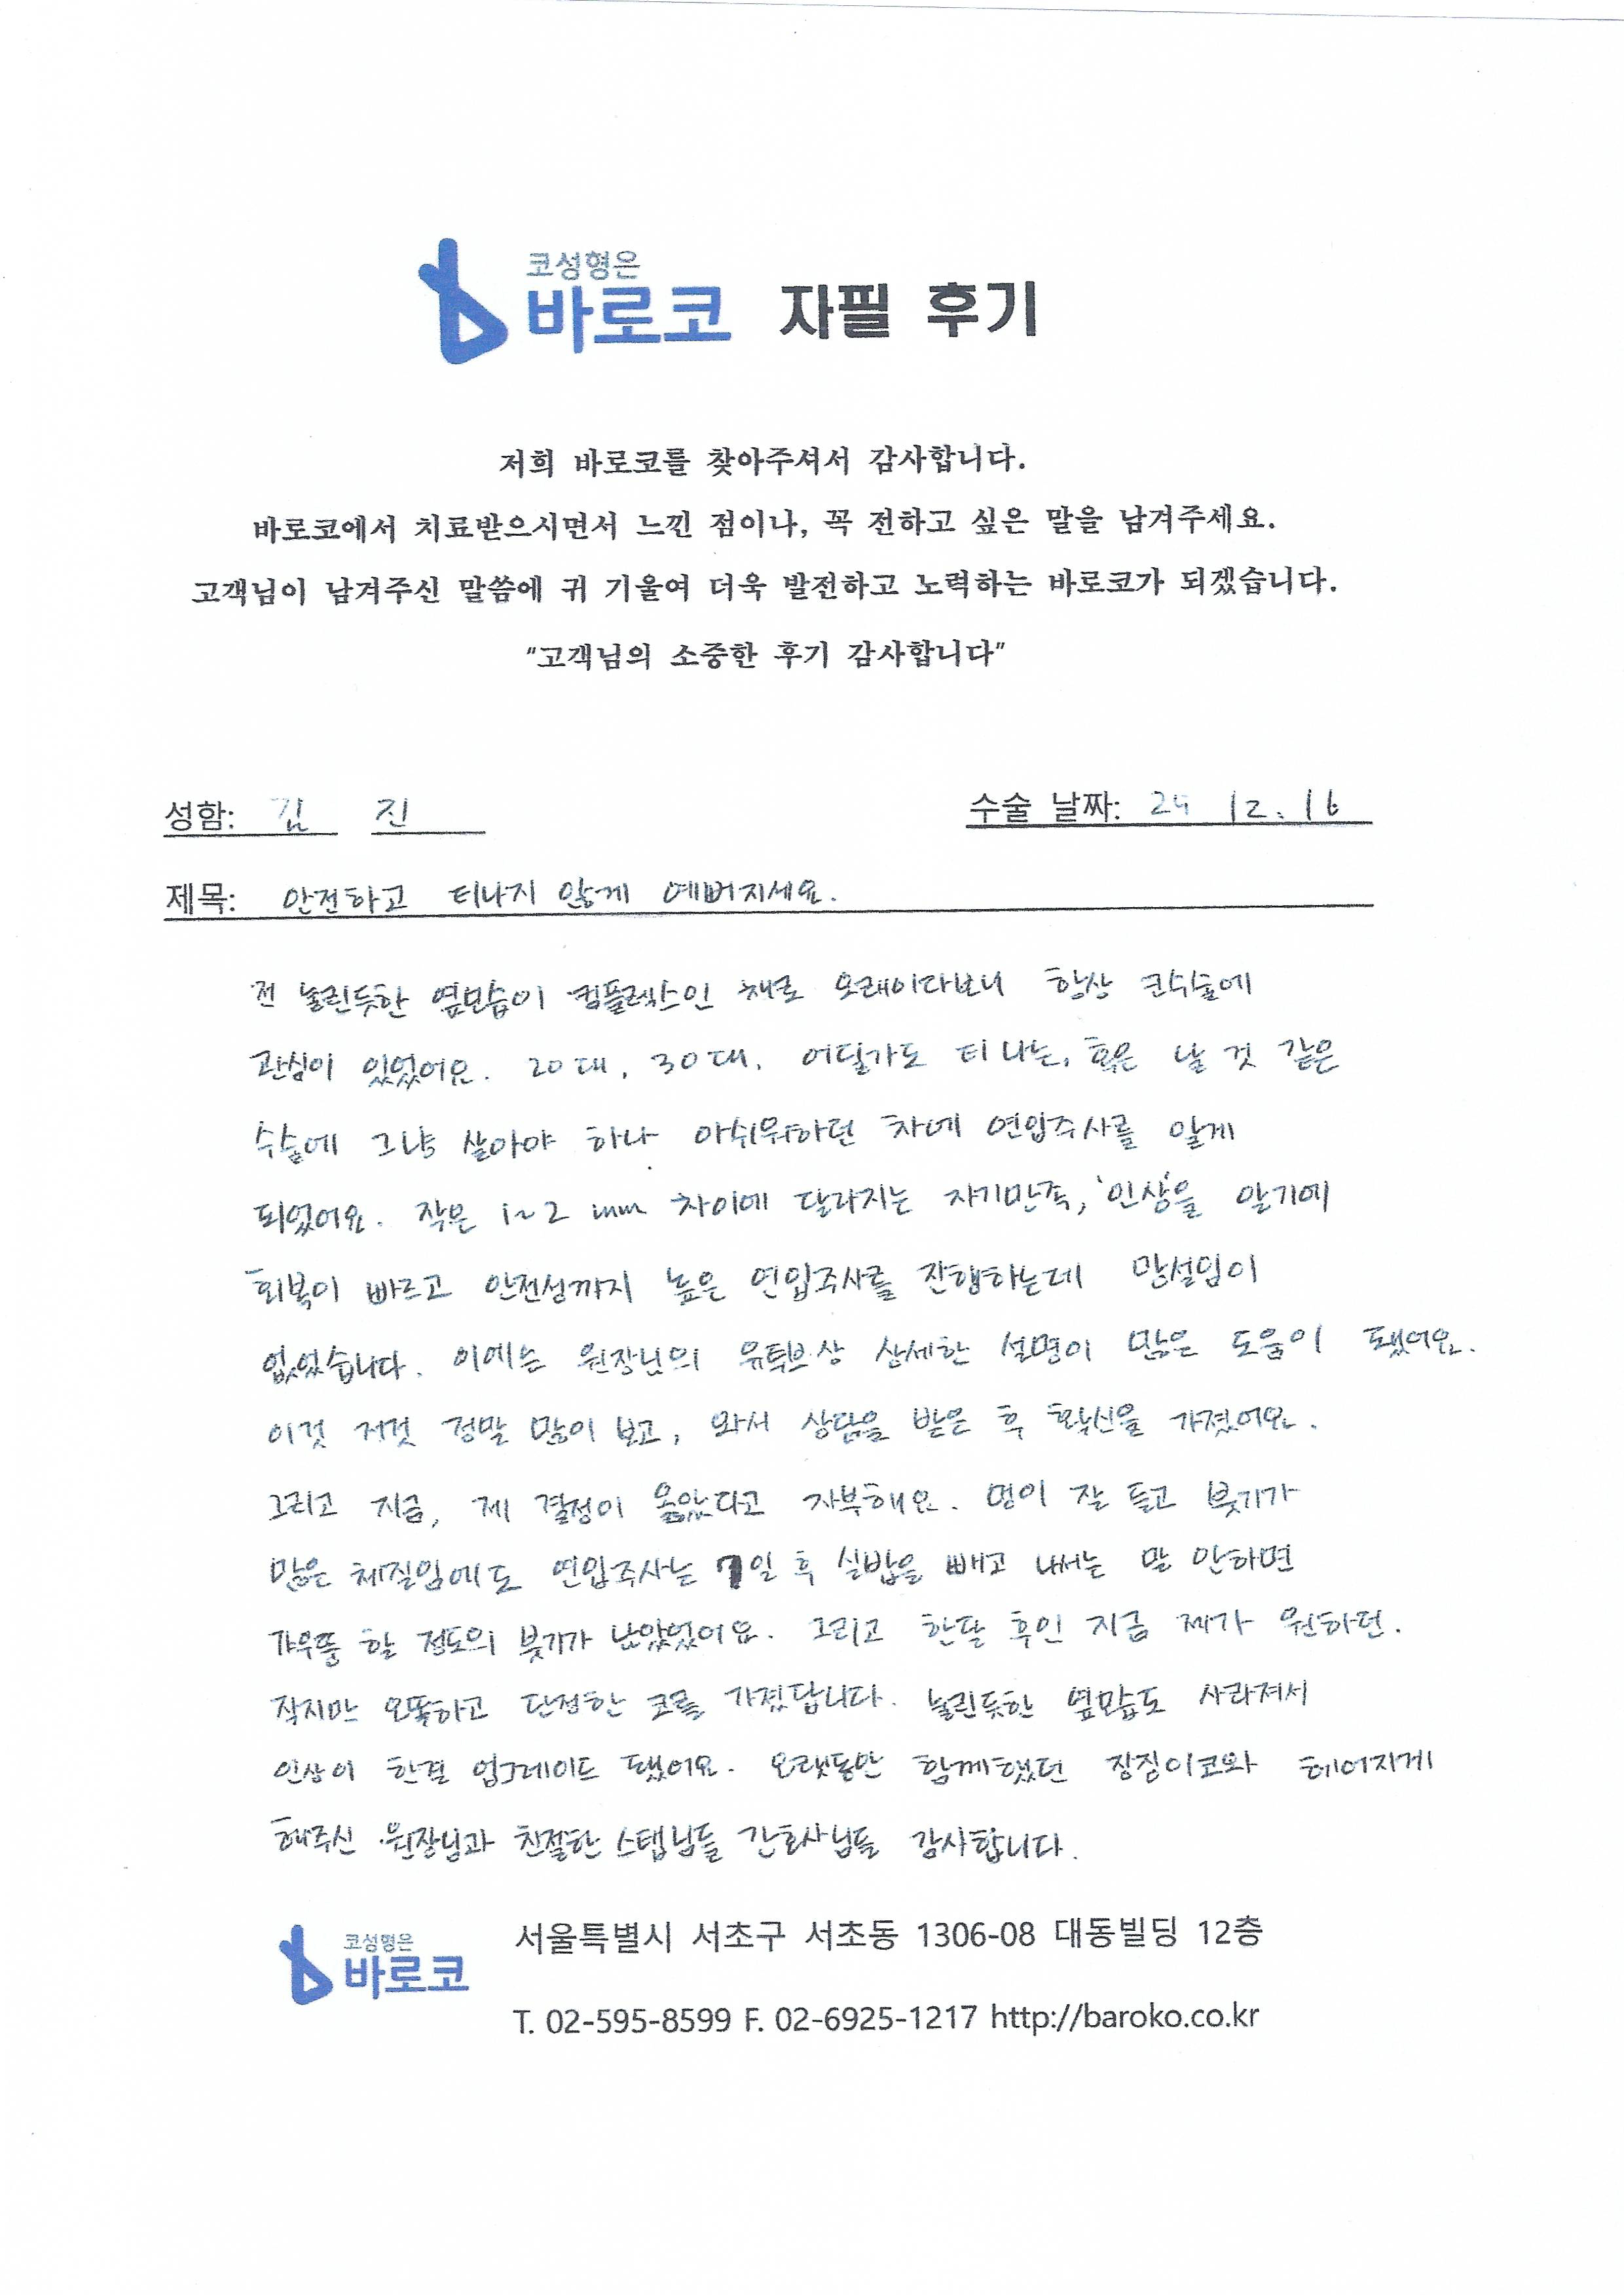 코성형은
바로코 자필 후기
저희 바로코를 찾아주셔서 감사합니다.
바로코에서 치료받으시면서 느낀 점이나, 꼭 전하고 싶은 말을 남겨주세요.
고객님이 남겨주신 말씀에 귀 기울여 더욱 발전하고 노력하는 바로코가 되겠습니다.
"고객님의 소중한 후기 감사합니다"
성함: 김 진 수술 날짜: 12. 16
제목: 안전하고 티나지 않게 예뻐지세요.
전 눌린듯한 옆모습이 컴플렉스인 채로 오래이다보니 항상 코수술에
관심이 있었어요. 20대, 30대, 어딜가도 티 나는, 혹은 날 것 같은
수술에 그냥 살아야 하나 아쉬워하던 차에 연입주사를 알게
되었어요. 작은 1~2 mm 차이에 달라지는 자기만족, '인상'을 알기에
회복이 빠르고 안전성까지 높은 연입주사를 진행하는데 망설임이
없었습니다. 이에는 원장님의 유튜브상 상세한 설명이 많은 도움이 됐어요.
이것 저것 정말 많이 보고, 와서 상담을 받은 후 확신을 가졌어요.
그리고 지금, 제 결정이 옳았다고 자부해요. 멍이 잘 들고 붓기가
많은 체질임에도 연입주사는 7일 후 실밥을 빼고 나서는 말 안하면
갸우뚱 할 정도의 붓기가 남았었어요. 그리고 한달 후인 지금 제가 원하던.
작지만 오똑하고 단정한 코를 가졌답니다. 눌린듯한 옆모습도 사라져서
인상이 한결 업그레이드 됐어요. 오랫동안 함께했던 징징이코와 헤어지게
해주신 원장님과 친절한 스텝님들 간호사님들 감사합니다.
코성형은
바로코
서울특별시 서초구 서초동 1306-08 대동빌딩 12층
T. 02-595-8599 F. 02-6925-1217 http://baroko.co.kr